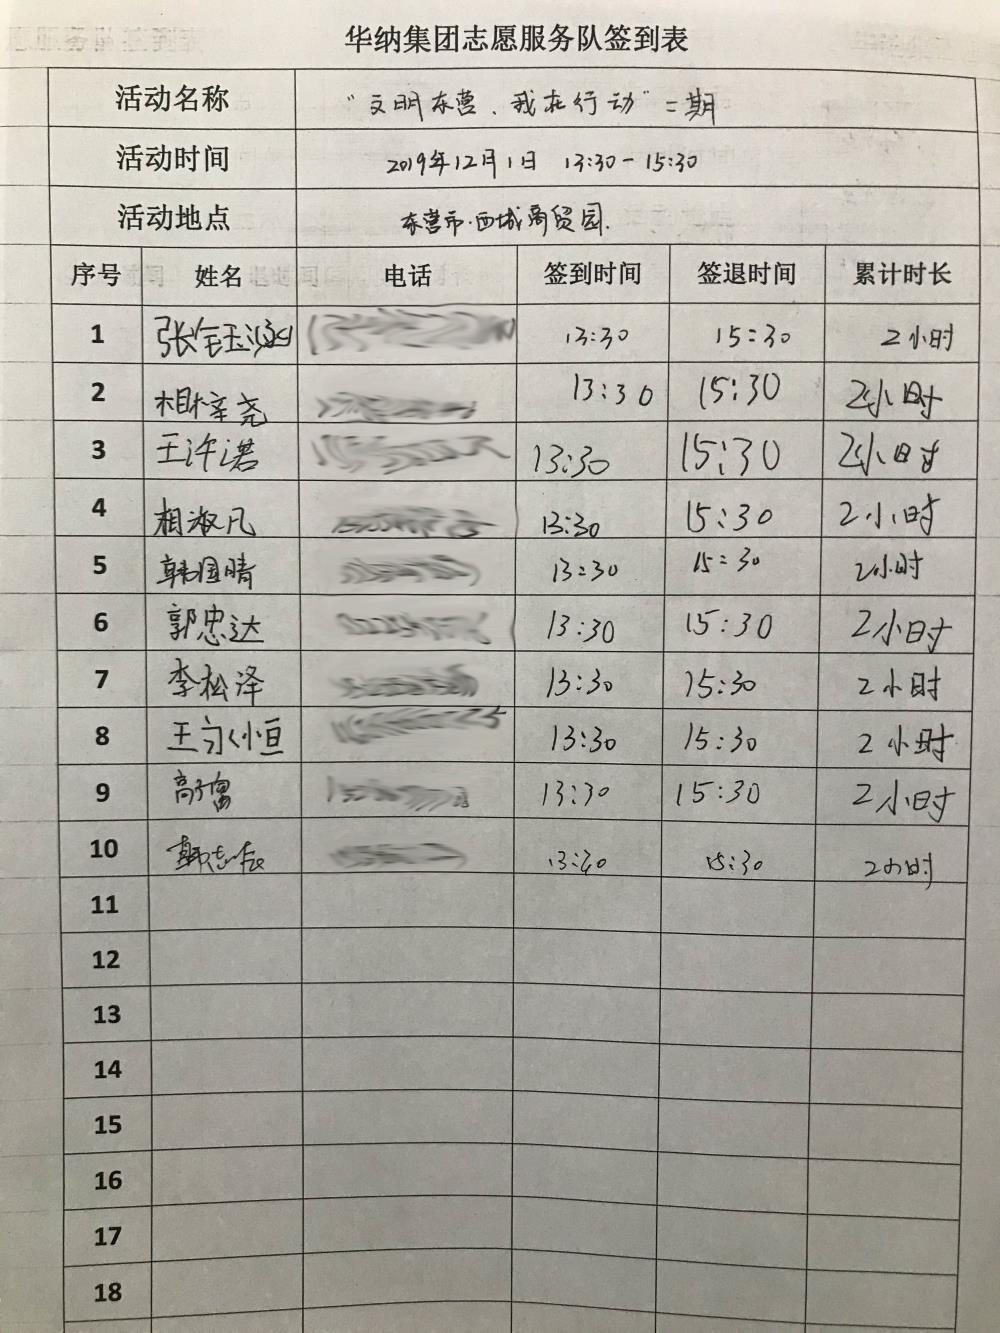 华纳集团志愿服务队签到表
活动名称 “文明东营、我在行动”二期
活动时间 2019年12月1日 13:30-15:30
活动地点 东营市·西城商贸园.
序号 姓名 电话 签到时间 签退时间 累计时长
1 张钰涵 13:30 15:30 2小时
2 相梓尧 13:30 15:30 2小时
3 王许诺 13:30 15:30 2小时
4 相淑凡 13:30 15:30 2小时
5 韩国晴 13:30 15:30 2小时
6 郭忠达 13:30 15:30 2小时
7 李松泽 13:30 15:30 2小时
8 王 13:30 15:30 2小时
9 高 13:30 15:30 2小时
10 韩志 13:30 15:30 2小时
11
12
13
14
15
16
17
18